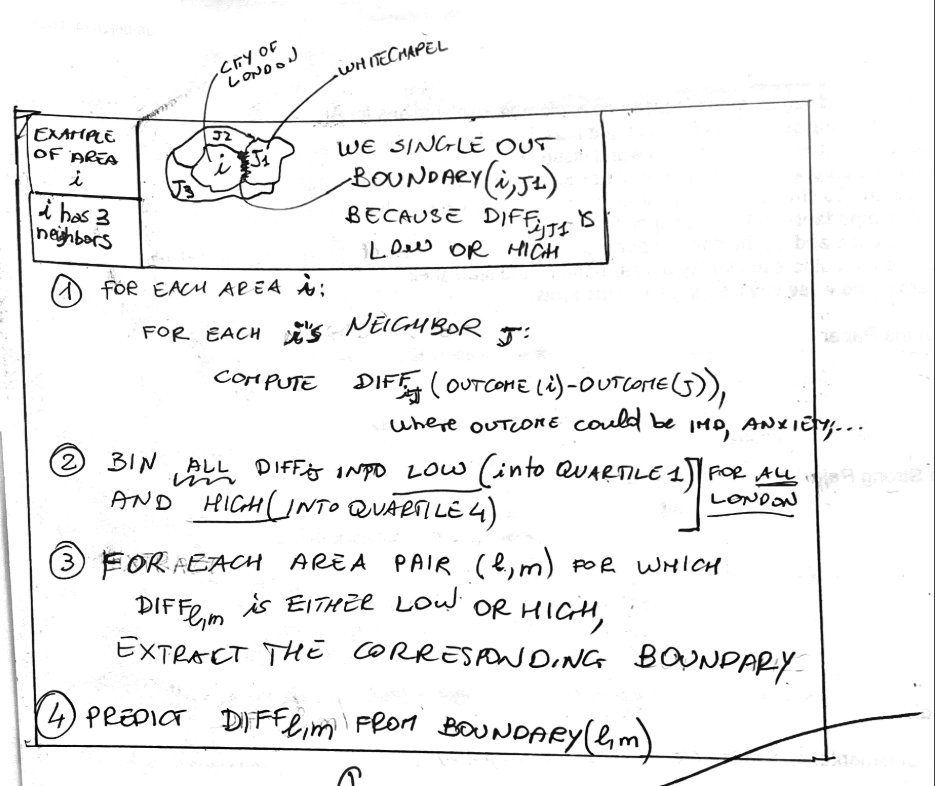 CITY OF
LONDON
WHITECHAPEL
EXAMPLE
OF AREA
i
i has 3
neighbors
J2
i
J1
J3
WE SINGLE OUT
BOUNDARY(i,J1)
BECAUSE DIFF i,J1 IS
LOW OR HIGH
1 FOR EACH AREA i:
FOR EACH i's NEIGHBOR J:
COMPUTE DIFF iJ (OUTCOME(i)-OUTCOME(J)),
where OUTCOME could be IMD, ANXIETY,...
2 BIN ALL DIFFs INTO LOW (into QUARTILE 1)
AND HIGH (INTO QUARTILE 4)
FOR ALL
LONDON
3 FOR EACH AREA PAIR (l,m) FOR WHICH
DIFF l,m is EITHER LOW OR HIGH,
EXTRACT THE CORRESPONDING BOUNDARY
4 PREDICT DIFF l,m FROM BOUNDARY(l,m)